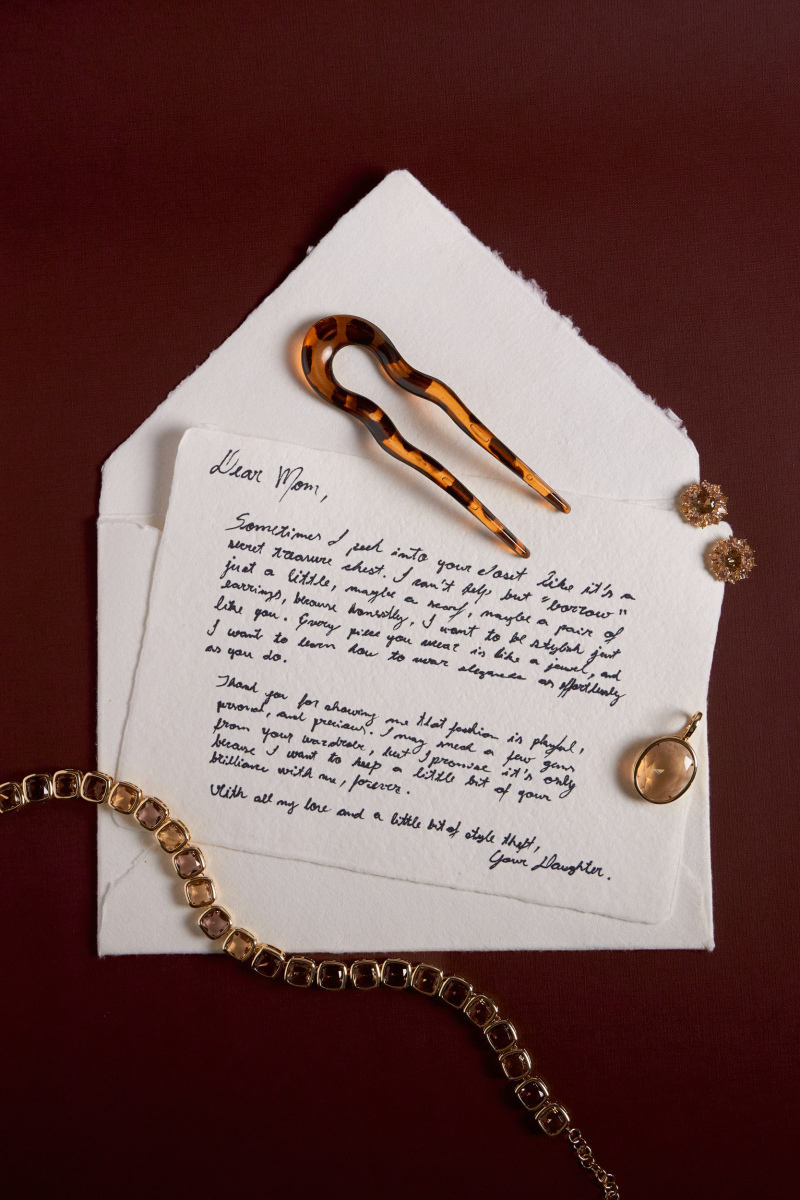 Dear Mom,
Sometimes I peek into your closet like it's a
secret treasure chest. I can't help but "borrow"
just a little, maybe a scarf, maybe a pair of
earrings, because honestly, I want to be stylish just
like you. Every piece you wear is like a jewel, and
I want to learn how to wear elegance as effortlessly
as you do.
Thank you for showing me that fashion is playful,
personal, and precious. I may sneak a few gems
from your wardrobe, but I promise it's only
because I want to keep a little bit of your
brilliance with me, forever.
With all my love and a little bit of style theft,
Your Daughter.